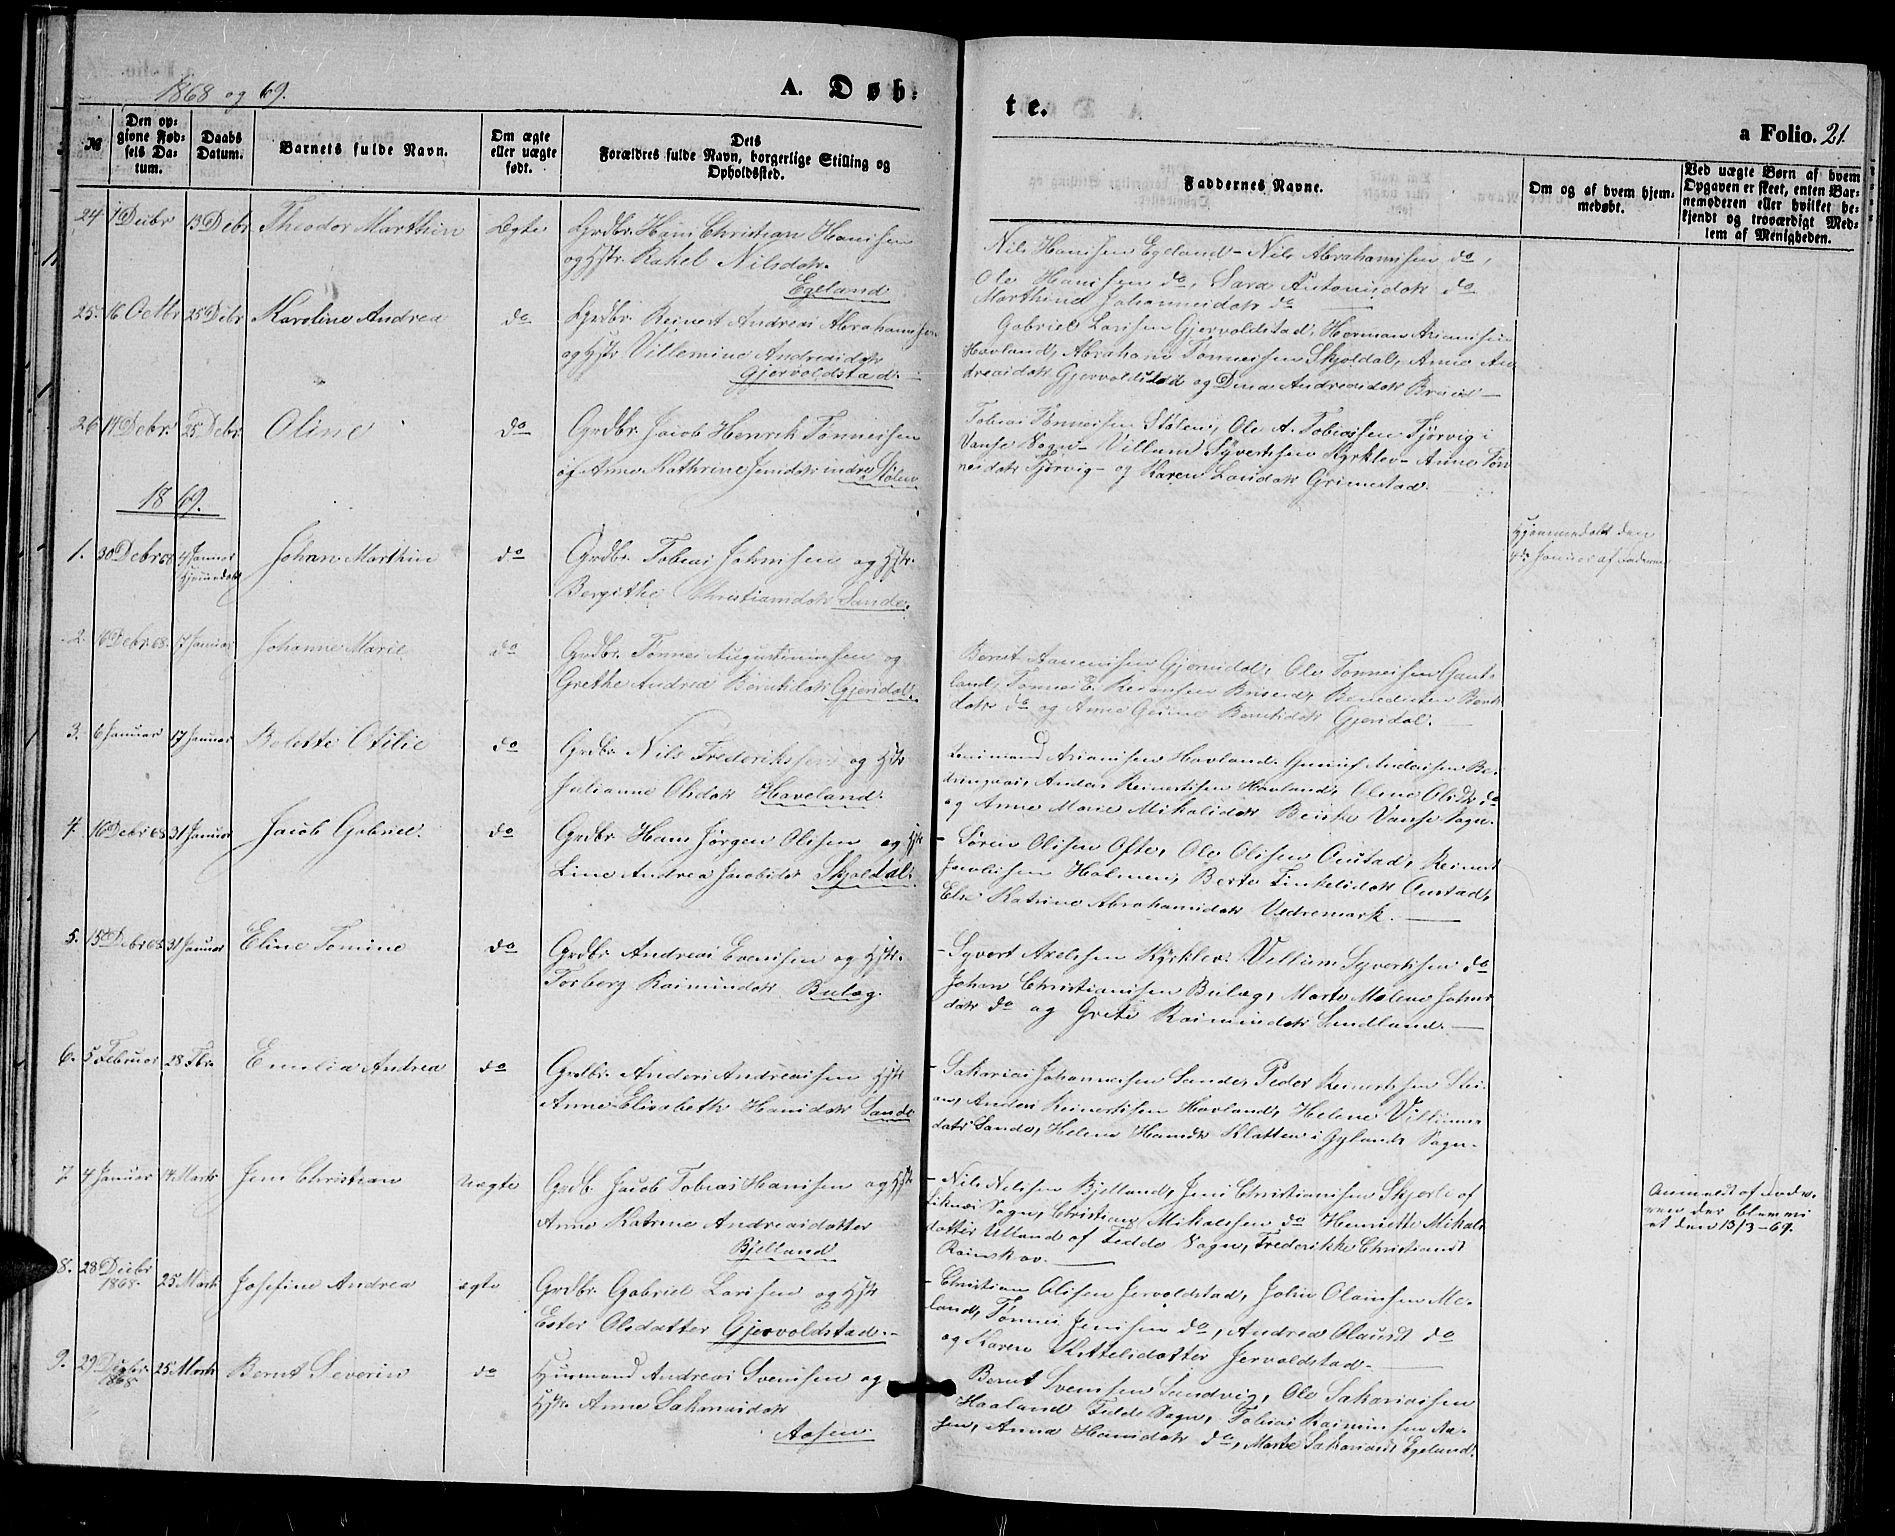 1868 og 69.
A. Døb-
te.
a Folio. 21.
№
Den op-
givne Fød-
sels Da-
tum.
Daabs
Datum.
Barnets fulde Navn.
Om ægte
eller uægte
født.
Dets
Forældres fulde Navn, borgerlige Stilling og
Opholdssted.
Faddernes Navne.
Om og af hvem hjem-
medøbt.
Ved uægte Børn af hvem
Opgaven er skeet, enten Bar-
nemoderen eller hvilket be-
kjendt og troværdigt Med-
lem af Menigheden.
24 1 Decbr 13 Debr Theodor Marthin Ægte Grdbr. Hans Christian Hansen
og Hstr. Rakel Nilsdatr.
Egeland
Nils Hansen Egeland - Nils Abrahamsen do,
Ole Hansen do, Sara Antonisdatr do
Marthina Johannesdatr do
25. 16 Octbr 25 Debr Karoline Andrea do Grdbr. Reinert Andreas Abrahamsen
og Hstr Villemine Andreasdatr
Gjervoldstad.
Gabriel Larsen Gjervoldstad, Herman Arianisen
Havland, Abraham Tønnesen Skjoldal, Anne An
dreasdatr Gjervoldstad og Dina Andreasdatr Briseid
26 14 Debr. 25 Debr Oline do Grdbr. Jacob Henrik Tønnesen
og Anne Kathrine Jensdatr indre Stølen
Tobias Tønnesen Stølen, Ole A. Tobiassen Tjørvig i
Vanse Sogn - Villum Syvertsen Kyrklev - Anne Tøn
nesdatr Tjørvig - og Karen Larsdatr Grimestad.
1869.
1. 30 Debr 68 4 Januar
Hjemmedøbt
Johan Marthin do Grdbr. Tobias Johnsen og Hstr.
Bergithe Christiansdatr Sande.
Hjemmedøbt den
4de Januar af
2. 6 Debr 68. 17 Januar Johanne Marie do Grdbr. Tønnes Augustinusen og
Grethe Andrea Berntsdatr Gjersdal.
Bernt Aanensen Gjersdal, Ole Tønnesen Gaut-
land, Tønnes E. Briseid, Bernt
datr do og Anne Berntsdatr Gjersdal.
3. 6 Januar 17 Januar Bolette Otilie do Grdbr Nils Frederiksen og Hstr
Julianne Olsdatr Haveland.
Arianisen Havland. Andersen
Anders Reinertsen Havland, Olene Olsdtr do
og Anne Marie Mikalsdatr Vanse Sogn.
4. 16 Debr 68 31 Januar Jacob Gabriel. do Grdbr Hans Jørgen Olsen og Hstr
Line Andrea Jacobsdatr Skjoldal.
- Søren Olsen Ofte, Ole Olsen Austad, Reinert
Jacobsen Holmen, Berte Tinkelsdatr Austad,
Else Katrine Abrahamsdatr Vedremark.
5. 15de Debr 68 31 Januar Eline Tomine do Grdbr Andreas Evensen og Hstr.
Torborg Raimundatr Bulæg.
- Syvert Axelsen Kyrklev. Villum Syvertsen do
Johan Christiansen Bulæg, Marte Malene Johns
datr do og Grete Raimundatr Sandland.
6. 5 Februar 28 Fbr. Emilia Andrea do Grdbr. Anders Andreassen Hstr
Anne Elisabeth Hansdatr Sande
- Sakarias Johannesen Sande, Peder Reinertsen
Anders Reinertsen Havland, Helene Villums
datr Sande, Helene Hansdtr Klatten i Gylands Sogn.
7. 4 Januar 14 Marts Jens Christian Uægte Grdb. Jacob Tobias Hansen og Hstr
Anne Katrine Andreasdatter
Bjelland
- Nils Nelsen Bjelland, Jens Christiansen Skjerle af
Liknes Sogn, Christian Mikalsen do Henriette Mikals
datter Ulland af Fedde Sogn, Frederikke Christiansdt
Rainskov.
Anmeldt af
der blev
et den 13/3-69.
8. 28 Decbr
1868. 25 Marts Josefine Andrea ægte Grdbr. Gabriel Larsen og Hstr
Ester Olsdatter Gjervoldstad.
- Christian Olsen Jervoldstad, John Olausen Me-
land, Tønnes Jensen do, Andrea Olausdt do
og Karen Kittelsdatter Jervoldstad
9. 29 Decbr.
1868 25 Marts Bernt Severin do Husmand Andreas Svensen og
Hstr. Anne Sakariasdatr
Aasen
Bernt Svensen Sandvig, Ole Sakariasen
Haaland Fedde Sogn, Tobias Raimunsen Aa-
sen, Anna Hansdatr do, Marte Sakariasdt Egeland.